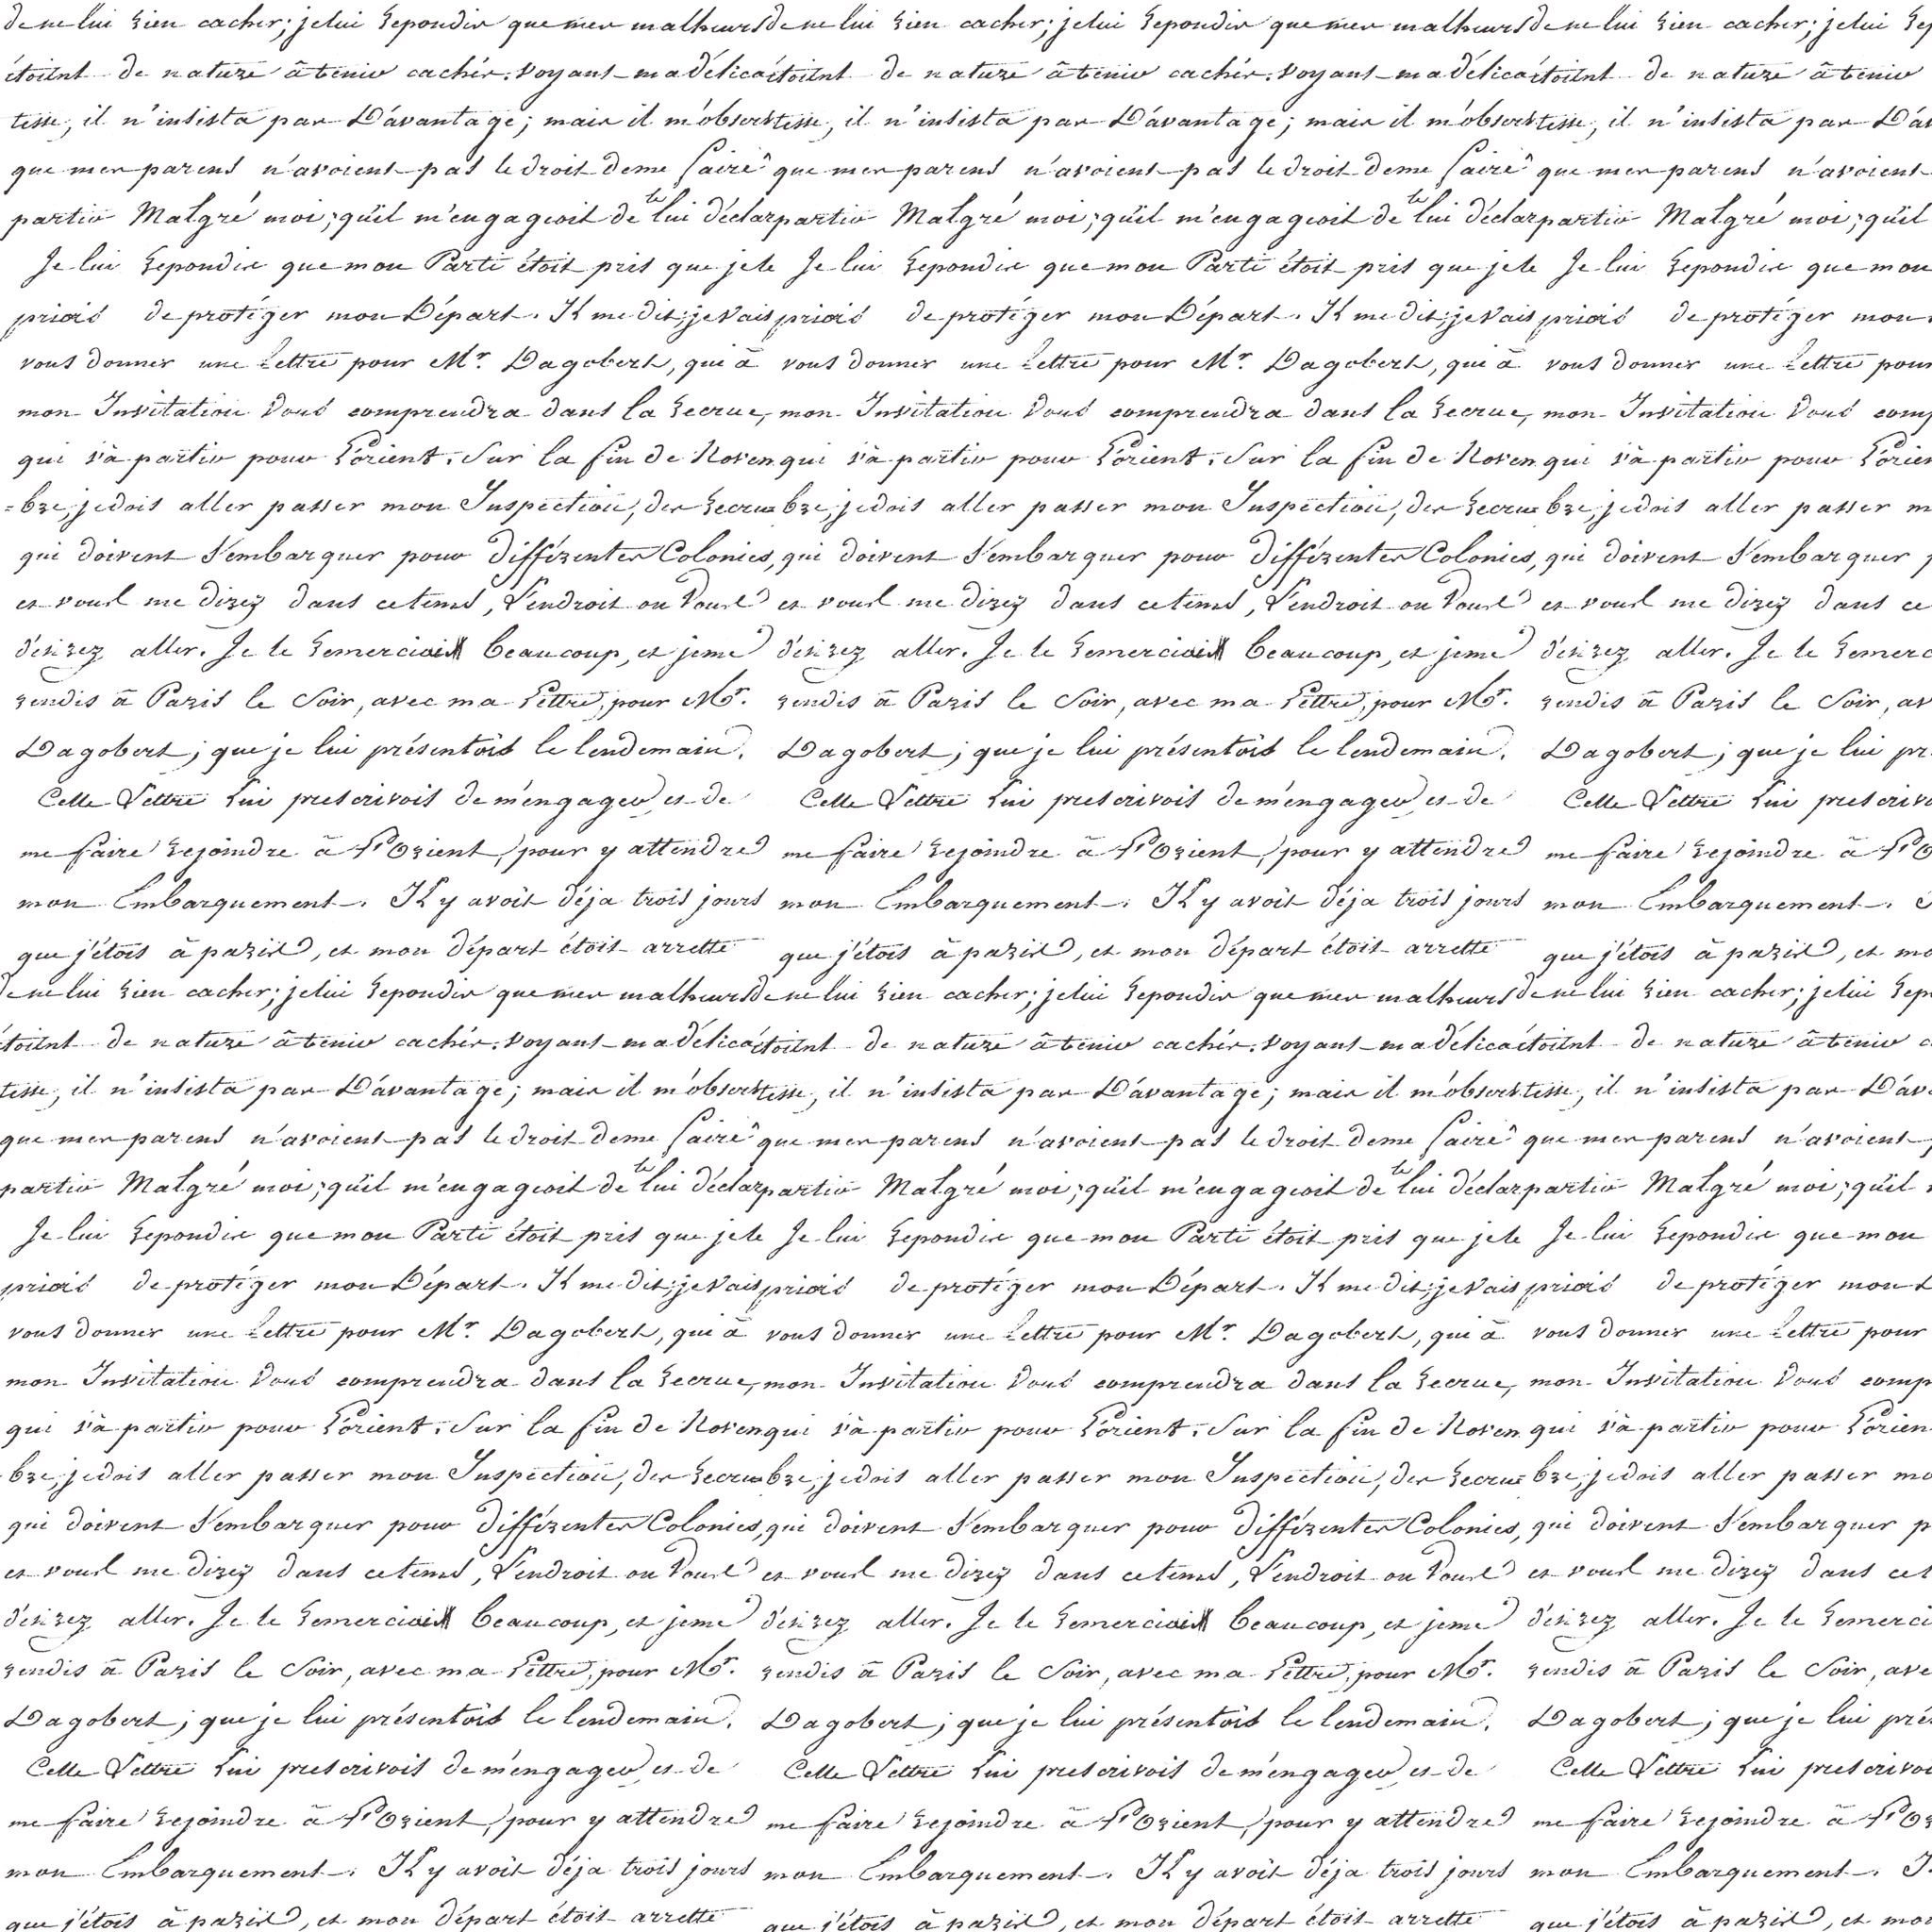 de ne lui rien cacher; je lui repondis que mes malheurs de ne lui rien cacher; je lui repondis que mes malheurs de ne lui rien cacher; je lui
étoient de nature à tenir cachés. voyant ma délica étoient de nature à tenir cachés. voyant ma délica étoient de nature à tenir
tesse, il n'insista pas D'avantage; mais il m'observ tesse, il n'insista pas D'avantage; mais il m'observ tesse, il n'insista pas
que mes parens n'avoient pas le droit de me faire que mes parens n'avoient pas le droit de me faire que mes parens n'avoient
partir Malgré moi; qu'il m'engageoit de le lui déclar partir Malgré moi; qu'il m'engageoit de le lui déclar partir Malgré moi; qu'il
Je lui repondis que mon Parti étoit pris que je le Je lui repondis que mon Parti étoit pris que je le Je lui repondis que mon
priois de protéger mon Départ. Il me dit; je vais priois de protéger mon Départ. Il me dit; je vais priois de protéger mon
vous donner une Lettre pour Mr. Dagobert, qui à vous donner une Lettre pour Mr. Dagobert, qui à vous donner une Lettre pour
mon Invitation vous comprendra dans la recrue, mon Invitation vous comprendra dans la recrue, mon Invitation vous comp
qui và partir pour L'orient. Sur la fin de Novem qui và partir pour L'orient. Sur la fin de Novem qui và partir pour L'orien
=bre, je dois aller passer mon Inspection, des recrues bre, je dois aller passer mon Inspection, des recrues bre, je dois aller passer m
qui doivent s'embarquer pour différentes Colonies, qui doivent s'embarquer pour différentes Colonies, qui doivent s'embarquer
et vous me direz dans ce tems, L'endroit ou vous et vous me direz dans ce tems, L'endroit ou vous et vous me direz dans ce
désirez aller. Je le remerciais beaucoup, et je me désirez aller. Je le remerciais beaucoup, et je me désirez aller. Je le remerc
rendis à Paris le Soir, avec ma Lettre, pour Mr. rendis à Paris le Soir, avec ma Lettre, pour Mr. rendis à Paris le Soir, av
Dagobert; que je lui présentois le lendemain. Dagobert; que je lui présentois le lendemain. Dagobert; que je lui pr
Cette Lettre lui prescrivoit de m'engager et de Cette Lettre lui prescrivoit de m'engager et de Cette Lettre lui prescriv
me faire rejoindre à L'Orient, pour y attendre me faire rejoindre à L'Orient, pour y attendre me faire rejoindre à L'O
mon Embarquement. Il y avoit déja trois jours mon Embarquement. Il y avoit déja trois jours mon Embarquement.
que j'étois à paris, et mon départ étoit arretté que j'étois à paris, et mon départ étoit arretté que j'étois à paris, et mo
de ne lui rien cacher; je lui repondis que mes malheurs de ne lui rien cacher; je lui repondis que mes malheurs de ne lui rien cacher; je lui rep
étoient de nature à tenir cachés. voyant ma délica étoient de nature à tenir cachés. voyant ma délica étoient de nature à tenir c
tesse, il n'insista pas D'avantage; mais il m'observ tesse, il n'insista pas D'avantage; mais il m'observ tesse, il n'insista pas D'av
que mes parens n'avoient pas le droit de me faire que mes parens n'avoient pas le droit de me faire que mes parens n'avoient
partir Malgré moi; qu'il m'engageoit de le lui déclar partir Malgré moi; qu'il m'engageoit de le lui déclar partir Malgré moi; qu'il
Je lui repondis que mon Parti étoit pris que je le Je lui repondis que mon Parti étoit pris que je le Je lui repondis que mon
priois de protéger mon Départ. Il me dit; je vais priois de protéger mon Départ. Il me dit; je vais priois de protéger mon
vous donner une Lettre pour Mr. Dagobert, qui à vous donner une Lettre pour Mr. Dagobert, qui à vous donner une Lettre pour
mon Invitation vous comprendra dans la recrue, mon Invitation vous comprendra dans la recrue, mon Invitation vous comp
qui và partir pour L'orient. Sur la fin de Novem qui và partir pour L'orient. Sur la fin de Novem qui và partir pour L'orien
bre, je dois aller passer mon Inspection, des recrues bre, je dois aller passer mon Inspection, des recrues bre, je dois aller passer mo
qui doivent s'embarquer pour différentes Colonies, qui doivent s'embarquer pour différentes Colonies, qui doivent s'embarquer p
et vous me direz dans ce tems, L'endroit ou vous et vous me direz dans ce tems, L'endroit ou vous et vous me direz dans ce t
désirez aller. Je le remerciais beaucoup, et je me désirez aller. Je le remerciais beaucoup, et je me désirez aller. Je le remerci
rendis à Paris le Soir, avec ma Lettre, pour Mr. rendis à Paris le Soir, avec ma Lettre, pour Mr. rendis à Paris le Soir, ave
Dagobert; que je lui présentois le lendemain. Dagobert; que je lui présentois le lendemain. Dagobert; que je lui pré
Cette Lettre lui prescrivoit de m'engager et de Cette Lettre lui prescrivoit de m'engager et de Cette Lettre lui prescrivoi
me faire rejoindre à L'Orient, pour y attendre me faire rejoindre à L'Orient, pour y attendre me faire rejoindre à L'Or
mon Embarquement. Il y avoit déja trois jours mon Embarquement. Il y avoit déja trois jours mon Embarquement.
que j'étois à paris, et mon départ étoit arretté que j'étois à paris, et mon départ étoit arretté que j'étois à paris, et mon